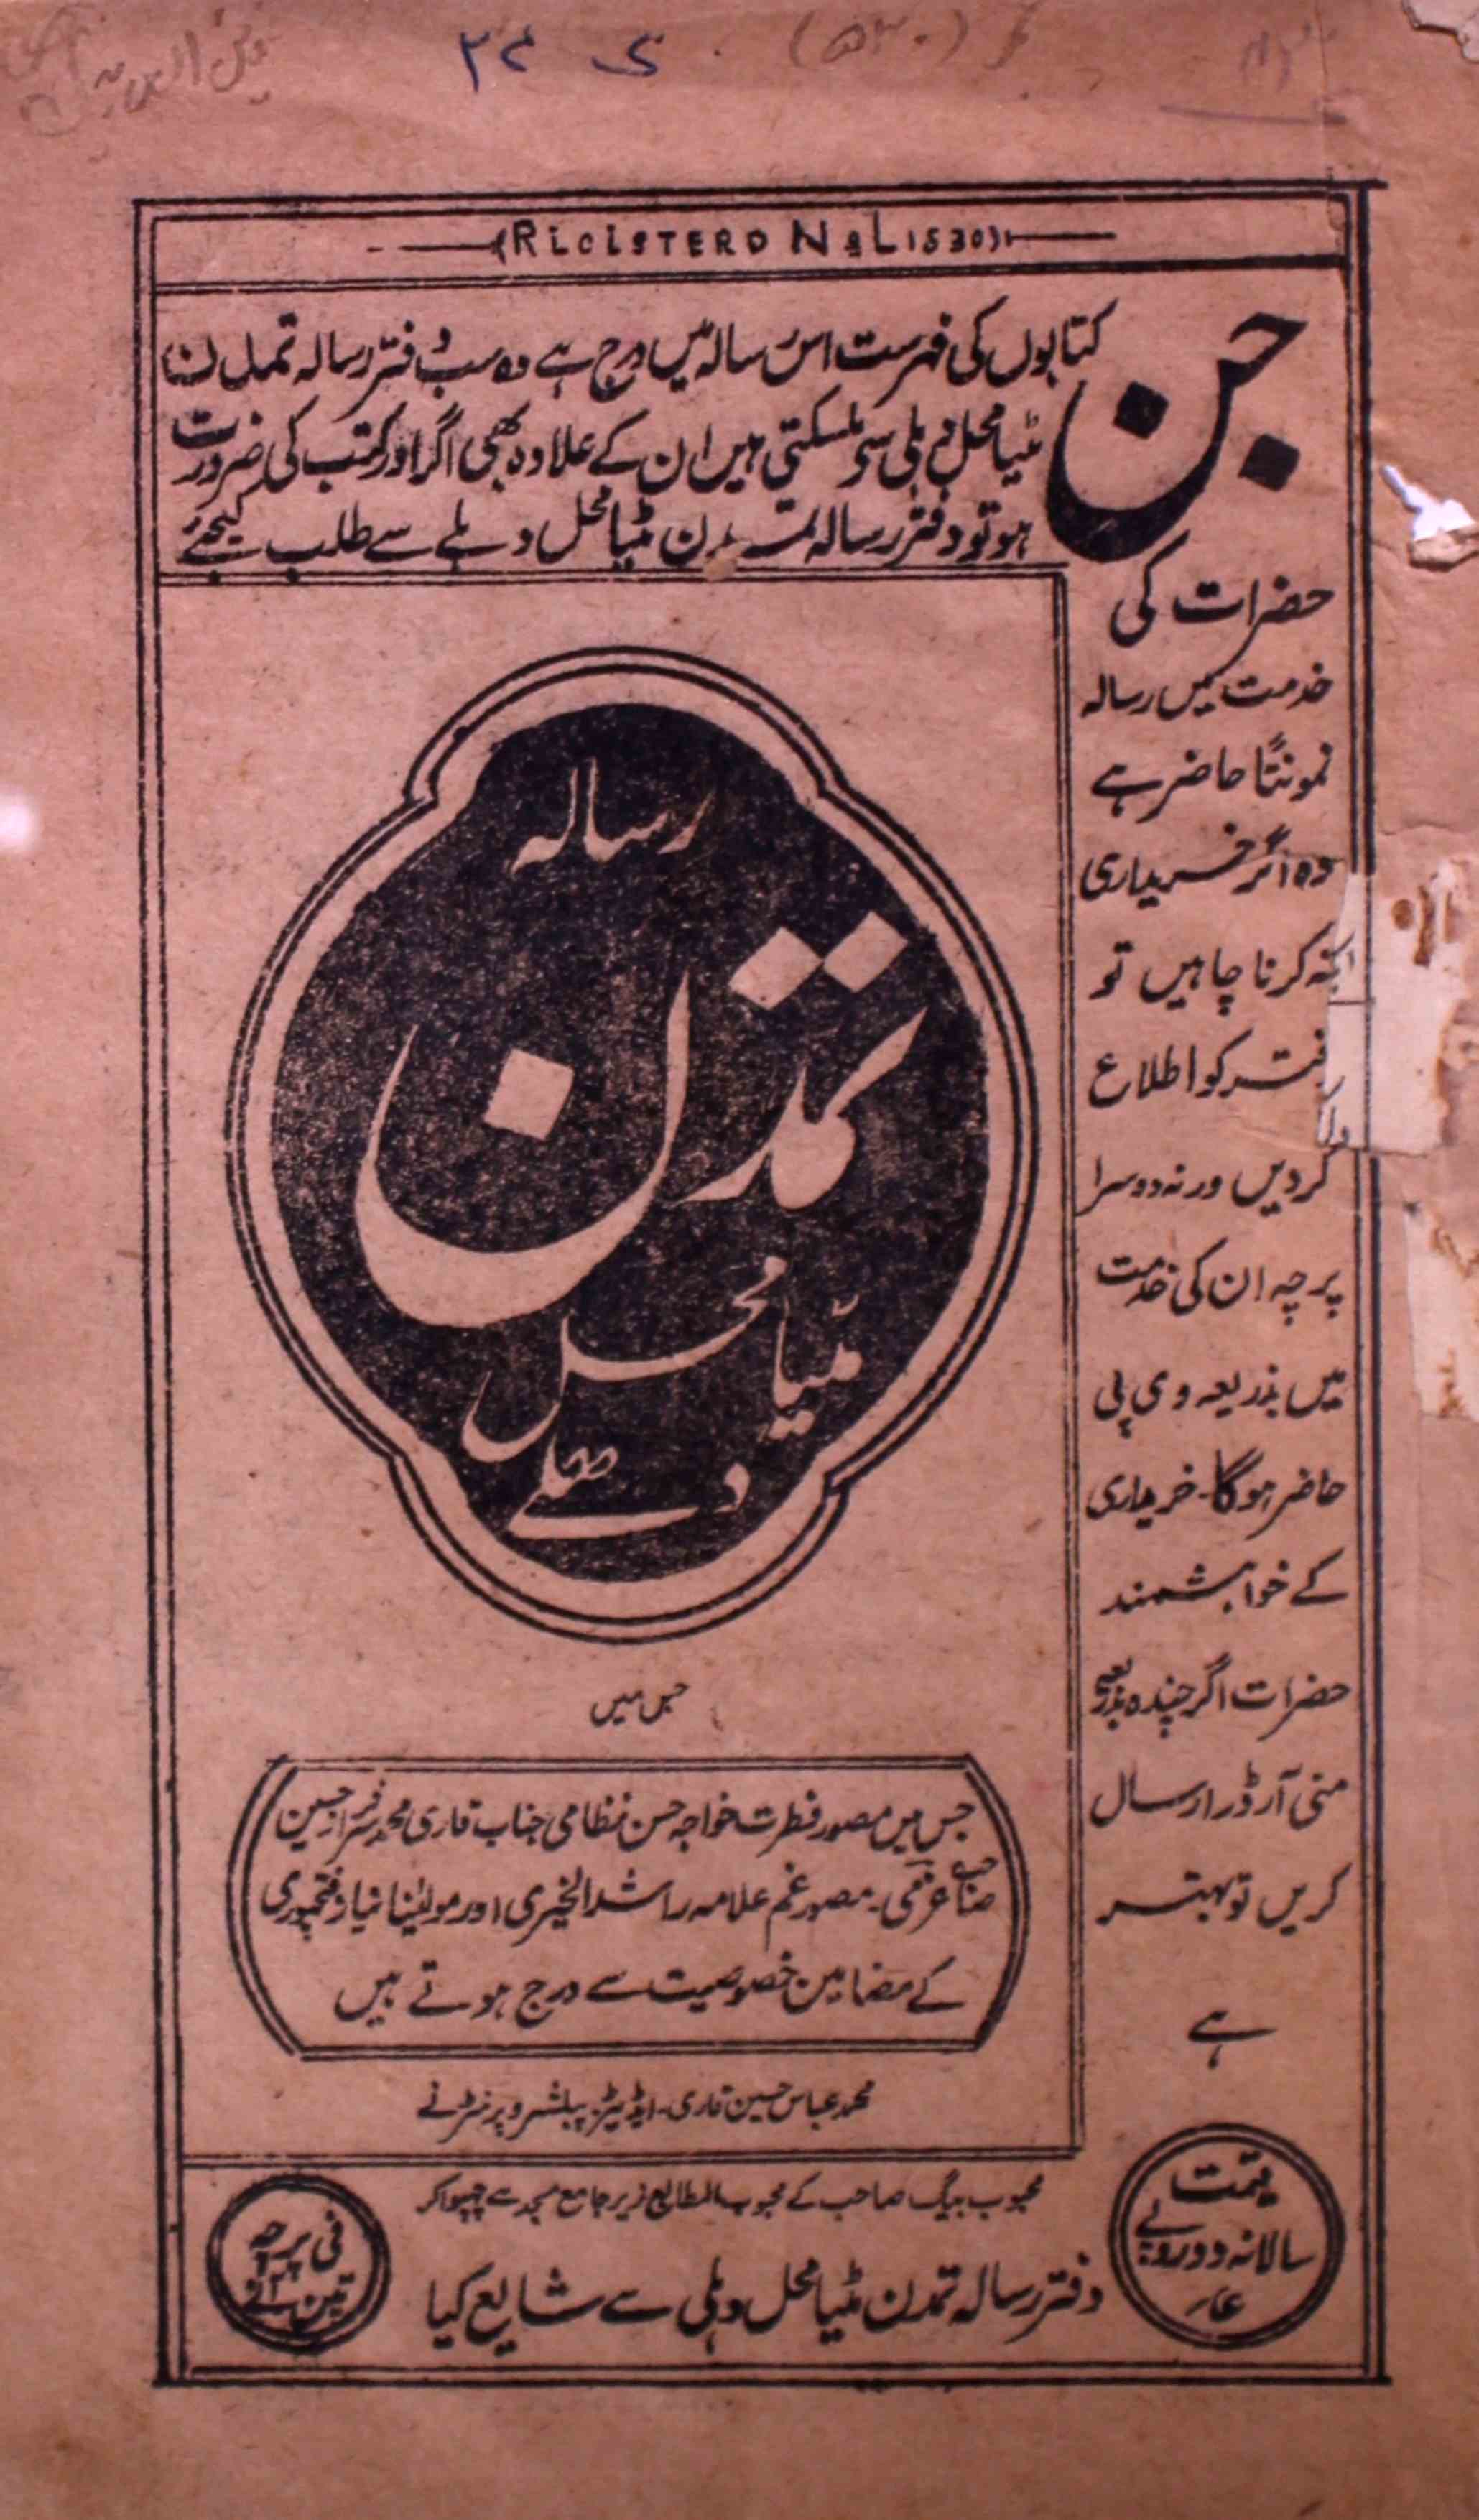 ۲۶ ی
(RLCISTERD No L1530)
جن
کتابوں کی فہرست اس رسالہ میں درج ہے وہ سب دفتر رسالہ تمدن
مٹیا محل دہلی سی ملسکتی ہیں ان کے علاوہ بھی اگر اور کتب کی ضرورت
ہو تو دفتر رسالہ تمدن مٹیا محل دہلے سے طلب کیجئے
حضرات کی
خدمت میں رسالہ
نمونتًا حاضر ہے
وہ اگر خریداری
نہ کرنا چاہیں تو
دفتر کو اطلاع
کردیں ورنہ دوسرا
پرچہ ان کی خدمت
میں بذریعہ وی پی
حاضر ہوگا۔ خریداری
کے خواہشمند
حضرات اگر چندہ بذریعہ
منی آرڈر ارسال
کریں تو بہتر
ہے
رسالہ
تمدن
مٹیا محل
دھلے
جس میں
جس میں مصور فطرت خواجہ حسن نظامی جناب قاری محمد سرفراز حسین
صاحب عزمی۔ مصور غم علامہ راشد الخیری اور مولینا نیاز فتحپوری
کے مضامین خصوصیت سے درج ہوتے ہیں
محمد عباس حسین قاری۔ ایڈیٹر۔ پبلشر و پرنٹر نے
محبوب بیگ صاحب کے محبوب المطابع زیر جامع مسجد سے چھپوا کر
دفتر رسالہ تمدن مٹیا محل دہلی سے شایع کیا
قیمت
سالانہ دو روپے
عار
فی پرچہ
تین آنے